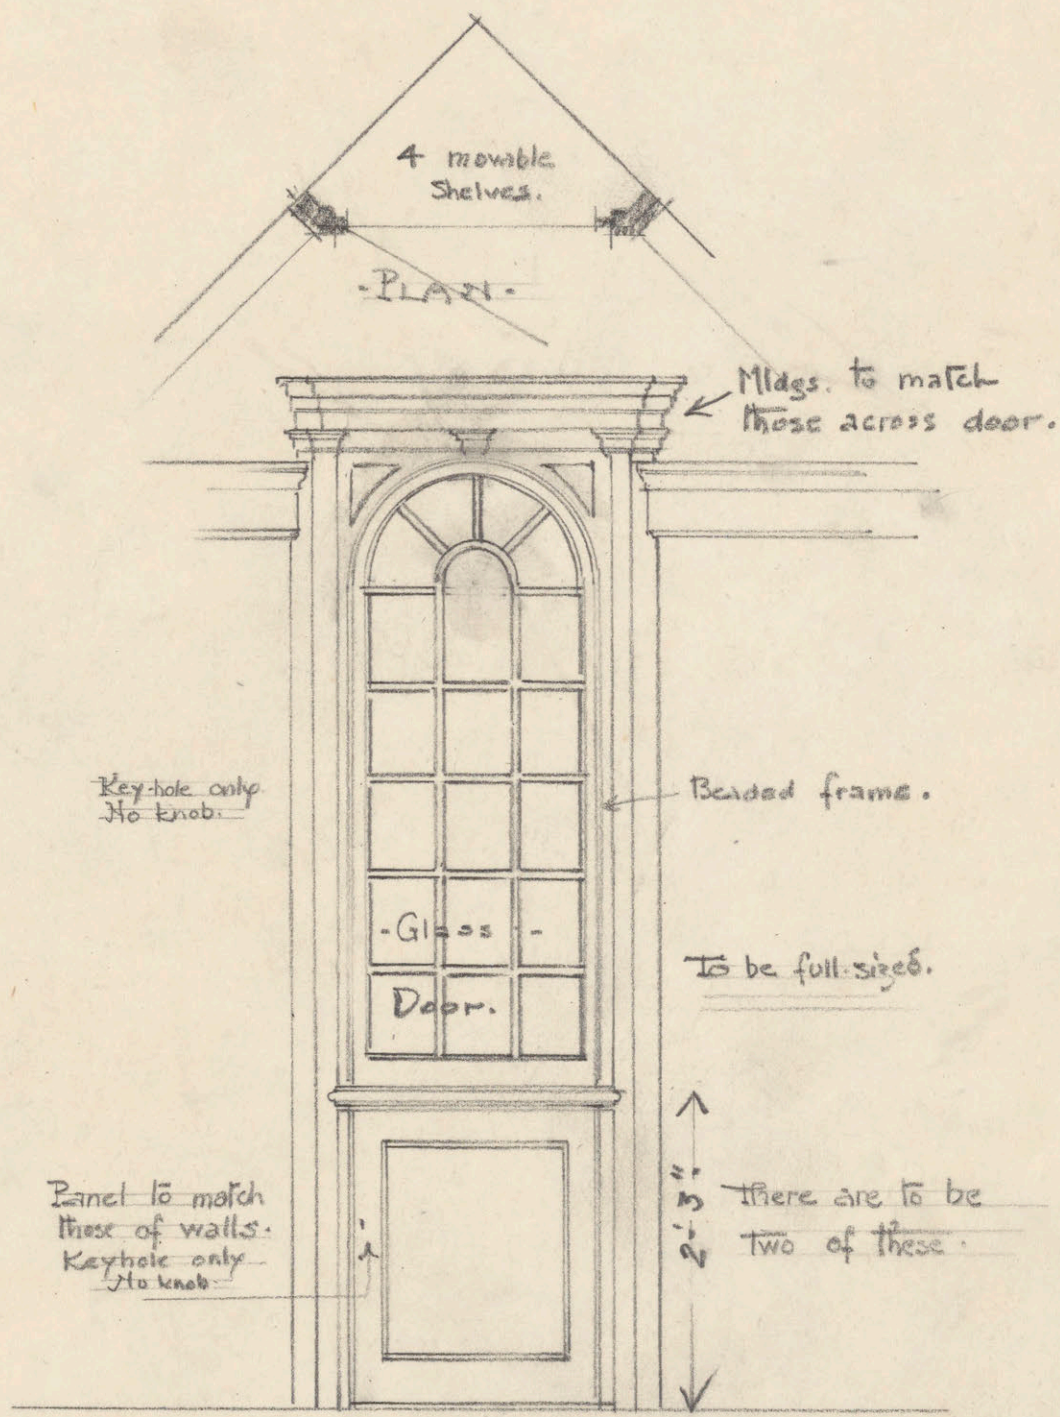 4 movable
Shelves.
-PLAN-
Mldgs. to match
those across door.
Key-hole only
No knob.
Beaded frame.
-Glass-
Door.
To be full-sized.
2'-3"
Panel to match
those of walls.
Keyhole only
No knob
There are to be
two of these.